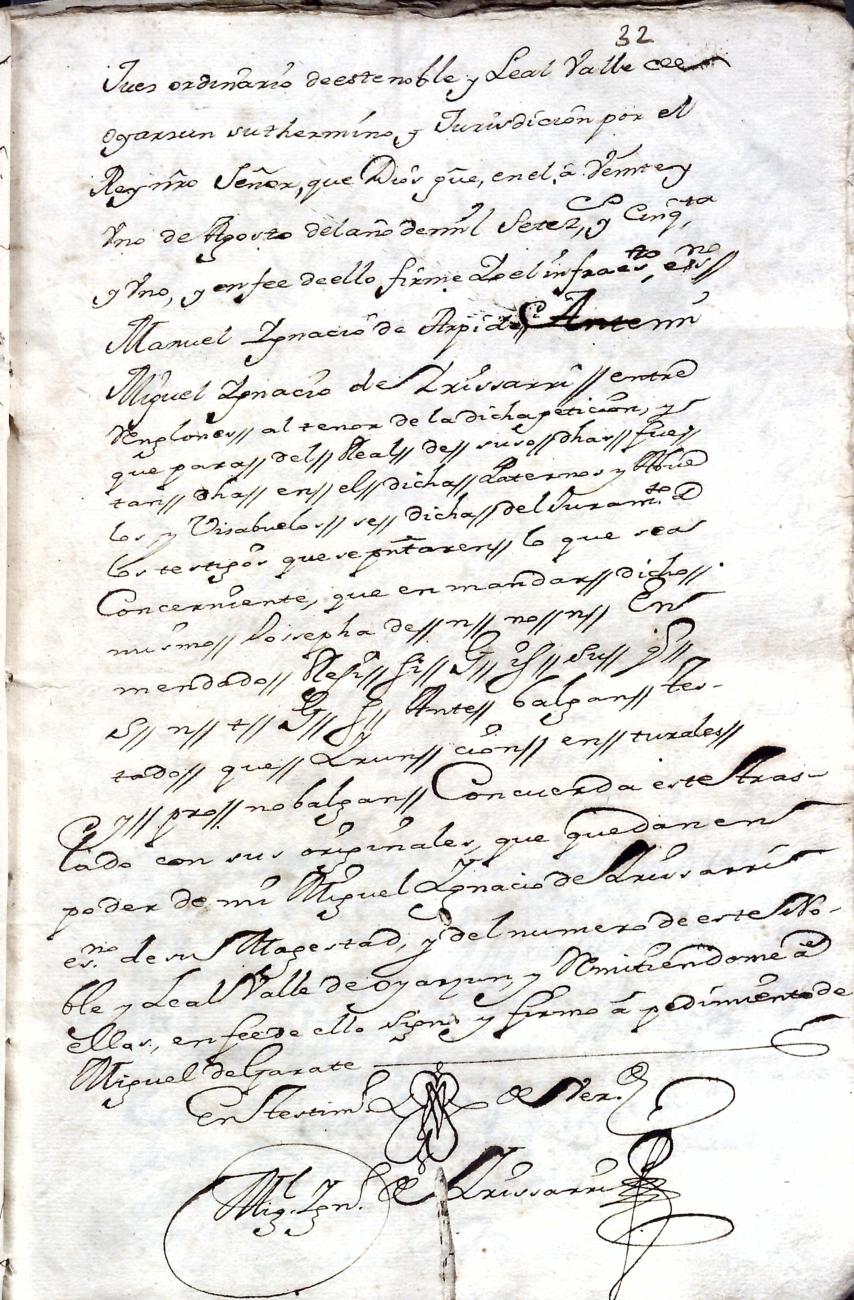 32
Juez ordinario de este noble y Leal Valle de
oyarzun su thermino, y Jurisdicion por el
Rey nr̃o Señor, que Dios gũe, en el, à Veinte y
Vno de Agosto del año de mil Setez.s y Cinq.ta
y Vno, y en fee de ello firme Yo el infraes.to es.no
Manuel Ygnacio de Arpide Antemi
Miguel Ygnacio de Yrissarri // entre
Renglones // al tenor de la dicha peticion, y
que para // del // Real // de // suso // dhas // fue //
tan // dha // en // el // dicha // Paternos y Abue
los, y Visabuelos // se // dicha // del Juram.to à
los testigos que se pñtaren // lo que sea
Concerniente, que en mandar // dicho //
mismo // Jossepha de // n // no // n // En
mendado // // si // G // // su // //
S // n // t // G // // Ante // balgan // tes-
tado // que // Yrun // cion // en // turales //
y // pro // no balgan // Concuerda este tras-
lado con sus originales, que quedan en
poder de mi Miguel Ygnacio de Yrissarri
es.no de su Magestad, y del numero de este No-
ble y Leal Valle de oyarzun, y Remitiendome à
ellas, en fee de ello signo y firmo à pedimiento de
Miguel de Garate
En testim.o de Ver.d
Mig.l Ygn.o de Yrissarri